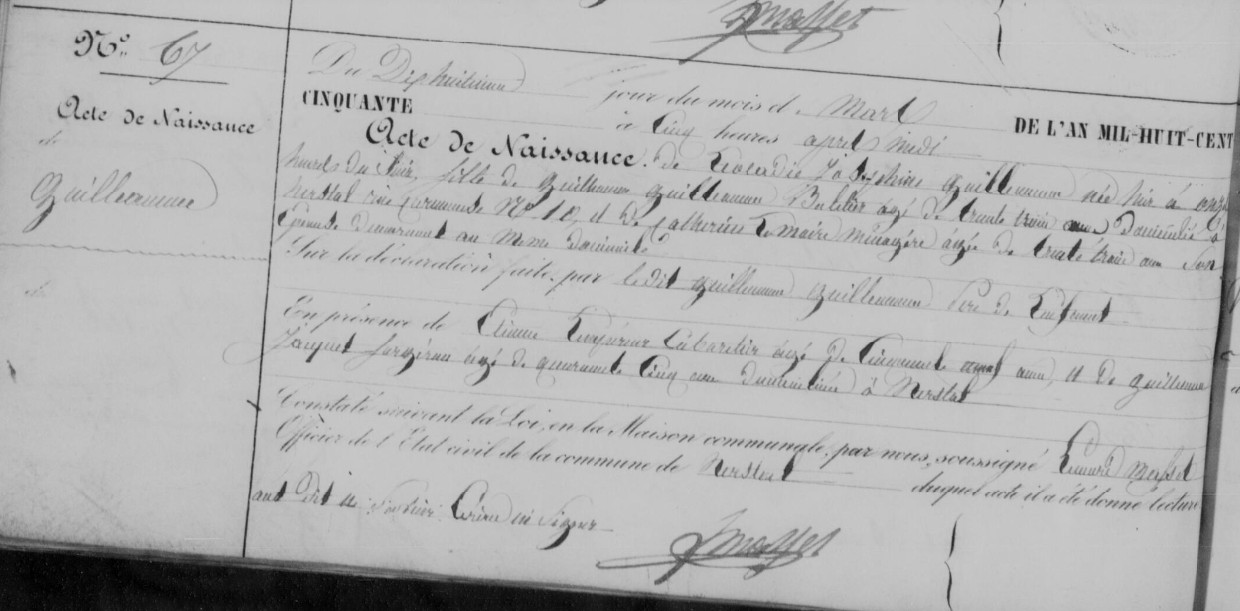 N.º 67
Acte de Naissance
de
Guilleaume
Du Dixhuitieme jour du mois d Mars DE L'AN MIL-HUIT-CENT
CINQUANTE à Cinq heures après midi
Acte de Naissance. de Leocadie Josephine Guilleaume née hier à onze
heures du Soir, fille de Guilleaume Guilleaume Batelier agé de trente trois ans Domicilié à
herstal rue N° 10, et de Catherine Lemaire ménagère agée de trente trois ans Son
Epouse demeurant au Meme domicile
Sur la déclaration faite par ledit Guilleaume Guilleaume Père de L'enfant
En présence de Etienne Lempereur Cabaretier agé de Cinquante neuf ans, et de Guilleaume
Jacques agé de quarante Cinq ans domiciliés à Herstal
Constaté suivant la Loi, en la Maison communale, par nous, soussigné Leonard
Officier de l'Etat civil de la commune de Herstal duquel acte il a été donné lecture
ont dit ne Savoir Ecrire ni Signer